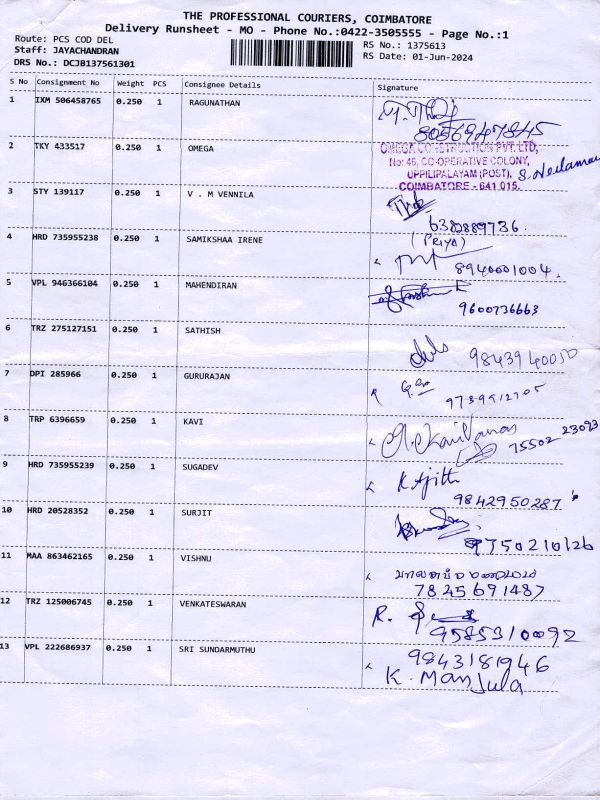 THE PROFESSIONAL COURIERS, COIMBATORE
Delivery Runsheet - MO - Phone No.:0422-3505555 - Page No.:1
Route: PCS COD DEL
Staff: JAYACHANDRAN
DRS No.: DCJB137561301
RS No.: 1375613
RS Date: 01-Jun-2024
S No Consignment No Weight PCS Consignee Details Signature
1 IXM 506458765 0.250 1 RAGUNATHAN
8056947845
2 TKY 433517 0.250 1 OMEGA
OMEGA CONSTRUCTION PVT.LTD,
No: 46, CO-OPERATIVE COLONY,
UPPILIPALAYAM (POST),
COIMBATORE - 641 015.
3 STY 139117 0.250 1 V . M VENNILA
4 HRD 735955238 0.250 1 SAMIKSHAA IRENE
(PRIYA)
8940001004
5 VPL 946366104 0.250 1 MAHENDIRAN
9600736663
6 TRZ 275127151 0.250 1 SATHISH
9843940050
7 DPI 285966 0.250 1 GURURAJAN
8 TRP 6396659 0.250 1 KAVI
75502 23093
9 HRD 735955239 0.250 1 SUGADEV
K Ajith
9842950287
10 HRD 20528352 0.250 1 SURJIT
9750210126
11 MAA 863462165 0.250 1 VISHNU
7845691487
12 TRZ 125006745 0.250 1 VENKATESWARAN
R.
9585310092
13 VPL 222686937 0.250 1 SRI SUNDARMUTHU
9843181946
K. Manjula